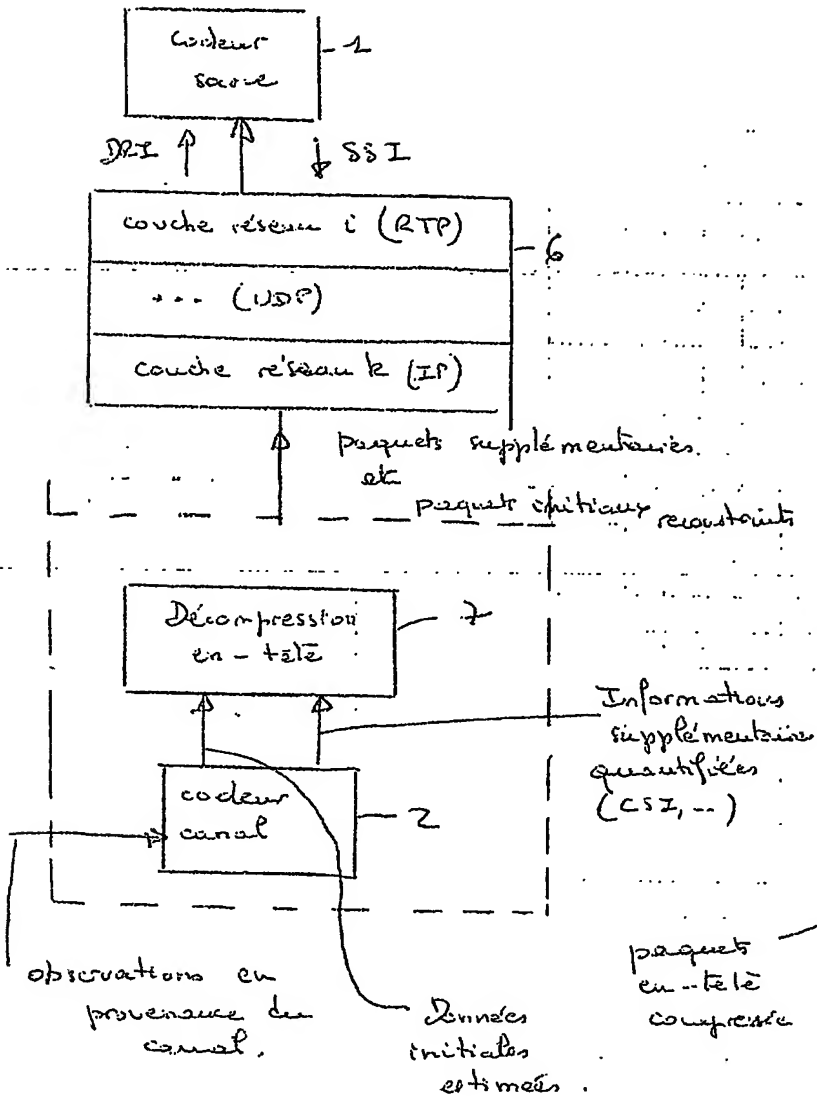 codeur
source
1
DRI
SSI
couche réseau i (RTP)
6
... (UDP)
couche réseau k (IP)
paquets supplémentaires
et
paquets initiaux reconstruits
Décompression
en-tête
7
Informations
supplémentaires
quantifiées
(CSI, ..)
codeur
canal
2
observations en
provenance du
canal.
Données
initiales
estimées.
paquets
en-tête
compressée